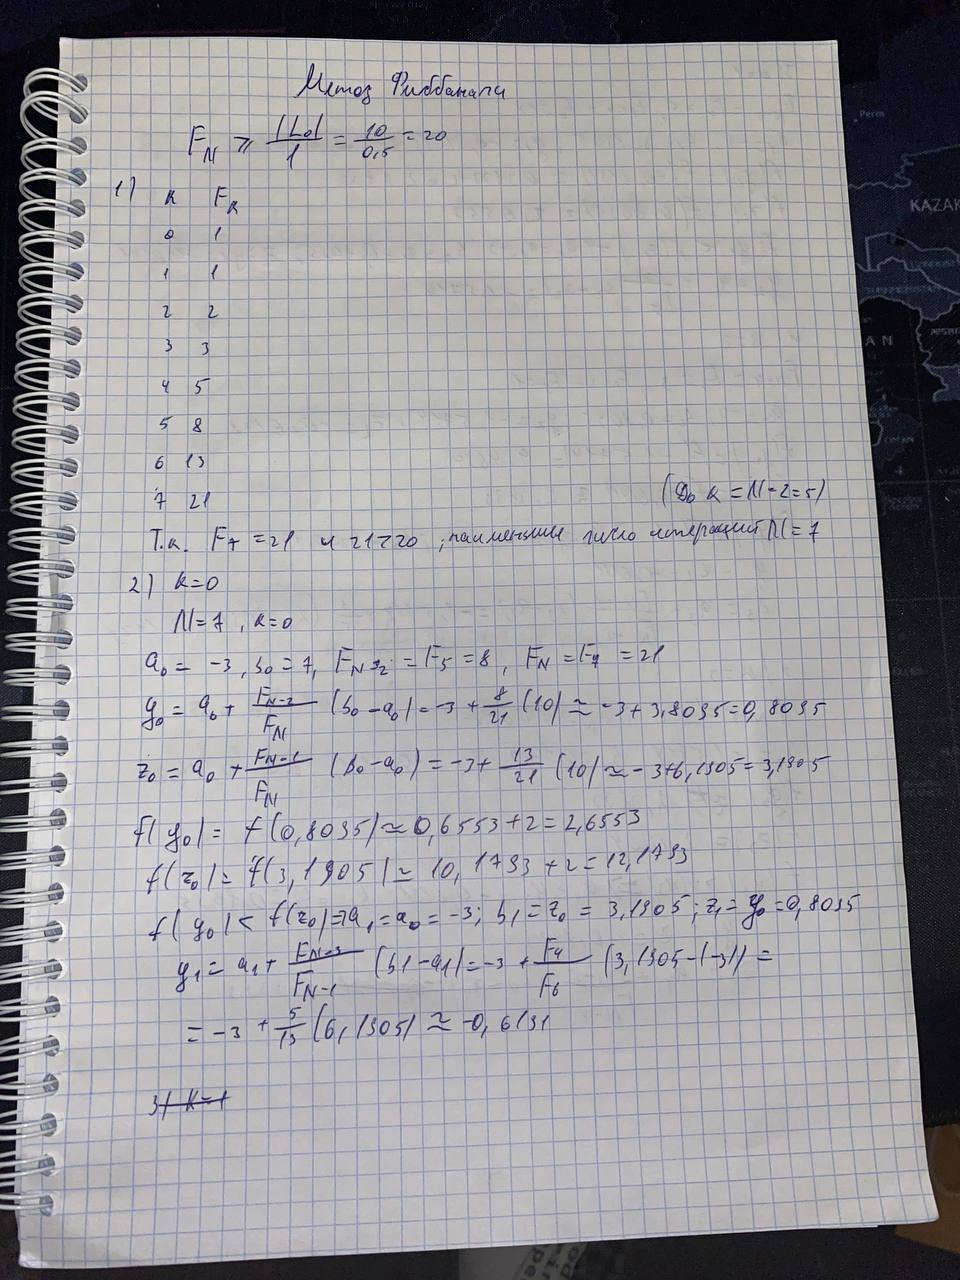 Метод Фиббаначи
F_N ⩾ |L₀|/l = 10/0,5 = 20
1) k F_k
0 1
1 1
2 2
3 3
4 5
5 8
6 13
7 21
(До k = N-2=5)
Т.к. F₇ = 21 и 21>20, наименшии число итерации N=7
2) k=0
N=7, k=0
a₀ = -3, b₀ = 7, F_{N-2} = F₅ = 8, F_N = F₇ = 21
y₀ = a₀ + F_{N-2}/F_N (b₀-a₀) = -3 + 8/21 (10) ≈ -3+3,8095=0,8095
z₀ = a₀ + F_{N-1}/F_N (b₀-a₀) = -3+ 13/21 (10) ≈ -3+6,1905=3,1905
f(y₀) = f(0,8095) ≈ 0,6553+2=2,6553
f(z₀) = f(3,1905) ≈ 10,1793+2=12,1793
f(y₀) < f(z₀) ⇒ a₁=a₀=-3; b₁=z₀=3,1905; z₁=y₀=0,8095
y₁ = a₁+ F_{N-3}/F_{N-1} (b1-a1) = -3 + F₄/F₆ (3,1905-(-3)) =
= -3 + 5/13 (6,1905) ≈ -0,6191
3) k=1